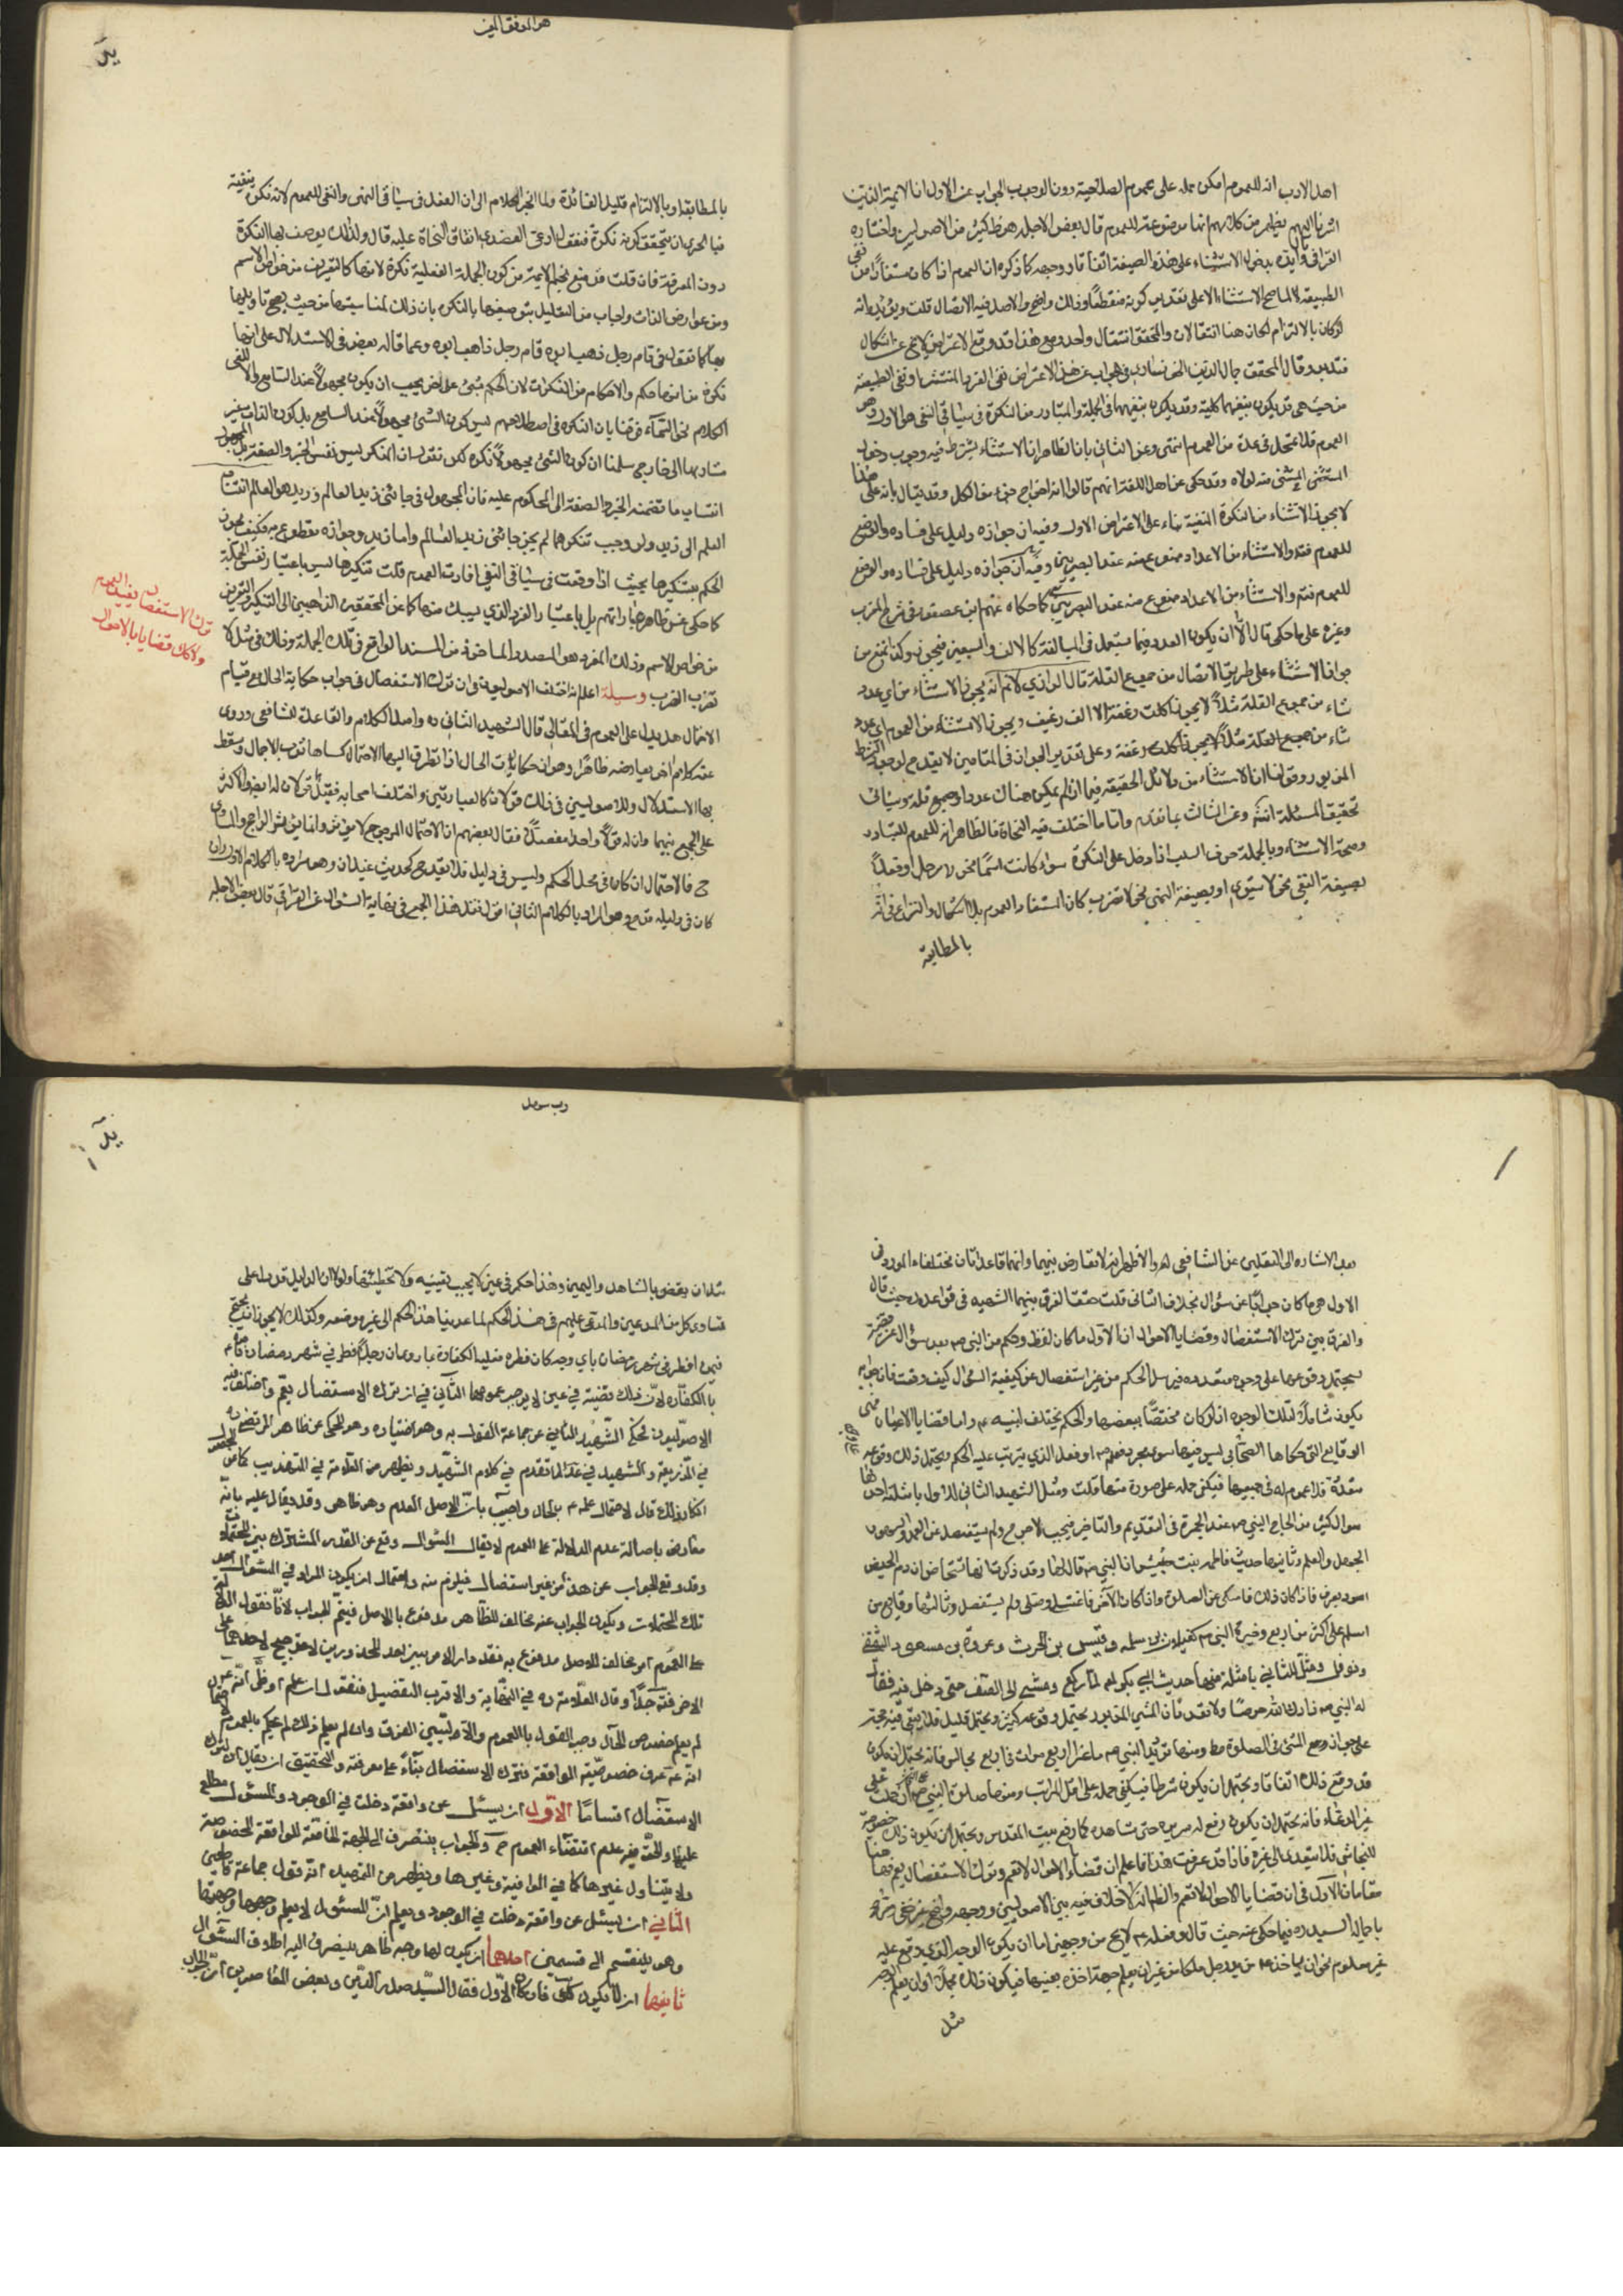 اهل الادب انه للعموم امكن حمله على عموم الصلاحية دون الوجوب الجواب عن الاول ان الايمة الذين
اشرنا اليهم يظهر من كلامهم انها موضوعة للعموم قال بعض الاجلة هو ظ كثير من الاصوليين واختاره
القرافي وايده بعض الاستثناء على هذه الصيغة اتفاقا ووجهه كما ذكره ان العموم اذا كان مستفادا من نفى
الطبيعة لا لما صح الاستثناء الا على تقدير كونه منقطعا وذلك واضح والاصل فيه الاتصال قلت ويؤيده انه
لو كان بالالتزام لكان هنا انتقالان والمحقق انتقال واحد ومع هذا قد وقع الاعتراض لا يخ عن اشكال
فتدبر وقال المحقق جمال الدين الخونساري في الجواب عن هذا الاعتراض نفى الفرد المنتشر او نفى الطبيعة
من حيث هى قد يكون بنفيها كلية وقد يكون بنفيها في الجملة والمتبادر من النكرة في سياق النفى هو الاول وهو
العموم فلا يتخلل في عدة من العموم انتهى وعن الثاني بان الظاهر ان الاستثناء يشترط فيه وجوب دخول
المستثنى في المستثنى منه لولاه وقد حكى عن اهل اللغة انهم قالوا انه اخراج جزء من الكل وقد يقال بانه على هذا
لا يجوز الاستثناء من النكرة المنفية بناء على الاعتراض الاول وفيه ان جوازه دليل على فساده والوضع
للعموم فتد والاستثناء من الاعداد ممنوع منه عند البصريين وفيه ان جوازه دليل على فساده والوضع
للعموم فتد والاستثناء من الاعداد ممنوع منه عند البصريين كما حكاه عنهم ابن عصفور في شرح المقرب
وغيره على ما حكى قال الا ان يكون العدد مما يستعمل في المبالغة كالالف والسبعين فيجوز وكذا نمنع من
جواز الاستثناء على طريق الاتصال من جميع القلة قال الرازي لا نم انه يجوز الاستثناء من اي عدد
شاء من جموع القلة مثلا لا يجوز اكلت رغفة الا الف رغيف ويجوز الاستثناء من العموم اي عدد
شاء من جميع القلة مثلا لا يجوز اكلت رغفة وعلى تقدير الجواز في المقامين لا يقدح لوجود الشرط
المزبور وقولنا ان الاستثناء من دلائل الحقيقة فيما اذا لم يكن هناك عددا وجمع قلة وسياتى
تحقيق المسئلة انش وعن الثالث بما تقدم واما ما اختلف فيه النحاة فالظاهر انه للعموم للتبادر
وصحة الاستثناء وبالجملة حرف السلب اذا دخل على النكرة سواء كانت اسما نحو لا رجل او فعلا
بصيغة النفى نحو لا يستوي او بصيغة النهى نحو لا تضرب كان المستفاد العموم بلا اشكال والنزاع في انه
بالمطابقة
هو الموفق المعين
بالمطابقة او بالالتزام قليل الفائدة ولما انجر الكلام الى ان الفعل في سياق النهى والنفى للعموم لانه نكرة منفية
فبالحري ان نتحقق كونه نكرة فنقول ادعى العضدي اتفاق النحاة عليه قال ولذلك يوصف بها النكرة
دون المعرفة فان قلت قد منع نجم الايمة من كون الجملة الفعلية نكرة لانها كالتعريف من خواص الاسم
ومن عوارض الذات واجاب من التعليل بتوصيفها بالنكرة بان ذلك لمناسبتها من حيث يصح تاويلها
بها كما تقول في قام رجل ذهب ابوه قام رجل ذاهب ابوه وعما قاله بعض في الاستدلال على انها
نكرة من انها حكم والاحكام من النكرات لان الحكم بشئ على اخر يجب ان يكون مجهولا عند السامع والا لغى
الكلام نحو السماء فوقنا بان النكرة في اصطلاحهم ليس كون الشئ مجهولا عند السامع بل كون الذات غير
مشار بها الى خارجى سلمنا ان كون الشئ مجهولا نكرة لكن نقول ان المنكر ليس نفس الخبر والصفة بل المجهول
انتساب ما تضمنه الخبر والصفة الى المحكوم عليه فان المجهول في جاءنى زيد العالم وزيد هو العالم انتساب
العلم الى زيد ولو وجب تنكيرهما لم يجز جاءنى زيد العالم واما زيد وجوازه مقطوع به فكيف يجوز
الحكم بتنكيرها بحيث اذا وقعت في سياق النفى افادت العموم قلت تنكيرها ليس باعتبار نفس الجملة
كما حكى عن ظاهر عباراتهم بل باعتبار الفرد الذي يسبك منها كما عن المحققين الذاهبين الى التنكير والتعريف
من خواص الاسم وذلك المفرد هو المصدر الماخوذ من المسند الواقع في تلك الجملة وذلك في مثل لا
تضرب الضرب وسيلة اعلم انه اختلف الاصوليون في ان ترك الاستفصال في جواب حكاية الحال مع قيام
الاحتمال هل يدل على العموم في المقال قال الشهيد الثاني ره واصل الكلام والقاعدة للشافعى وروى
عنه كلام اخر يعارضه ظاهرا وهو ان حكايات الحال اذا تطرق اليها الاحتمال كساها ثوب الاجمال وسقط
بها الاستدلال وللاصوليين في ذلك قولان كالعبارتين واختلف اصحابه فقيل قولان له ايضا والاكثر
على الجمع بينهما وان له قولا واحدا مفصلا فقال بعضهم ان الاحتمال المرجوح لا يؤثر وانما يؤثر الراجح والمساوي
ح فالاحتمال ان كان في محل الحكم وليس في دليله فلا يقدح كحديث غيلان وهو مراده بالكلام الاول وان
كان في دليله قدح وهو المراد بالكلام الثاني اقول نقل هذا الجمع في نهاية السئول عن القرافي قال بعض الاجلة
ترك الاستفصال يفيد العموم
ولا كذلك قضايا الاحوال
بعد الاشارة الى النقلين عن الشافعى له والاظهر انه لا تعارض بينهما وانهما قاعدتان مختلفتا المورد
الاول هو ما كان جوابا عن سؤال بخلاف الثاني قلت حقق الفرق بينهما الشهيد في قواعده حيث قال
والفرق بين ترك الاستفصال وقضايا الاحوال ان الاول ما كان لفظ وحكم من النبى ص بعد سؤال عن قضية
يحتمل وقوعها على وجوه متعددة فيرسل الحكم من غير استفصال عن كيفية السؤال كيف وقعت فان جوابه
يكون شاملا لتلك الوجوه اذ لو كان مختصا ببعضها والحكم يختلف لبينه ع واما قضايا الاعيان فهى
الوقايع التى حكاها الصحابى ليس فيها سوى مجرد فعله ص او فعل الذي يترتب عليه الحكم ويحتمل ذلك وقوعه
متعددة فلا عموم له في جميعها فيكفى حمله على صورة منها قلت ومثل الشهيد الثاني للاول بامثلة احدها
سوال كثير من الحاج النبى ص عند الجمرة في التقديم والتاخير فيجيب لا حرج ولم يستفصل عن العمد والسهو
الجهل والعلم وثانيها حديث فاطمه بنت حبيش ان النبى ص قال لها وقد ذكرت انها تستحاض ان دم الحيض
اسود يعرف فاذا كان ذلك فامسكى عن الصلوة واذا كان الآخر فاغتسلى وصلى ولم يستفصل وثالثها وقايع من
اسلم على اكثر من اربع وخيره النبى ص كغيلان بن سلمه وقيس بن الحرث وعروة بن مسعود الثقفى
ونوفل ومثل للثاني بامثلة منها حديث ابى بكره لما ركع ومشى الى الصف حتى دخل فيه فقال
له النبى ص زادك الله حرصا ولا تعد فان المشى المذبور يحتمل وقوعه كثيرا ويحتمل قليلا فلا يبقى فيه حجة
على جواز وقوع المشى في الصلوة مط ومنها ترديد النبى ص ماعزا اربع مرات في اربع مجالس فانه يحتمل ان يكون
قد وقع ذلك اتفاقا ويحتمل ان يكون شرطا فيكفى حمله على اقل المراتب ومنها صلوة النبى ص على
غير الدعاء فانه يحتمل ان يكون رفع له سريره حتى شاهده كما رفع بيت المقدس ويحتمل ان يكون ذلك خصوصية
للنجاشى فلا يتعدى الى غيره فاذا قد عرفت هذا فاعلم ان قضاء الاحوال لا تعم وترك الاستفصال يعم فهنا
مقامان الاول في ان قضايا الاحوال لا تعم والظ انه لا خلاف فيه بين الاصوليين ووجهه واضح
ياجماله السيد ره فيما حكى عنه حيث قال وفعله ع لا يخ من وجهين اما ان يكون الوجه الذي وقع عليه
غير معلوم نحو ان ياخذ ع من يد رجل ملكا من غير ان يعلم جهة اخذه بعينها فيكون ذلك مجملا او ان يعلم الوجه
مثل
رب سهل
مثل ان يقضى بالشاهد واليمين وهذا حكم في عين لا يجب تعيينه ولا تخطيتها ولولا ان الدليل قد دل على
تساوى كل من المدعين والمدعى عليهم في هذا الحكم لما عدينا هذا الحكم الى غير موضعه وكذلك لا يجوز ان يحتج
فيمن افطر في شهر رمضان باي وجه كان فطره فعليه الكفارة بما روى ان رجلا افطر في شهر رمضان فامره ع
بالكفارة لان ذلك قضية في عين لا يوجب عمومها الثاني في ان ترك الاستفصال يعم واختلف فيه
الاصوليون فحكى الشهيد الثاني عن جماعة القول به وهو اختياره وهو المحكى عن ظاهر المرتضى ره
في الذريعة والشهيد في عد لما تقدم في كلام الشهيد ويظهر من العلامة في التهذيب
انكار ذلك قال لاحتمال علمه ع بالحال واجيب بان الاصل العدم وهو ظاهر وقد يقال عليه بانه
معارض باصالة عدم الدلالة على العموم لا يقال السؤال وقع عن القدر المشترك بين المحتملات
وقد وقع الجواب عن هذا من غير استفصال فيلزم منه واحتمال ان يكون المراد في السؤال احد
تلك المحتملات ويكون الجواب عنه مخالف للظاهر مدفوع بالاصل فيتم الجواب لانا نقول الدلالة
على العموم امر مخالف للاصل مدفوع به فقد دار الامر بين احد المحذورين لا ترجيح لاحدهما على
الاخر فتد جدا وقال العلامة ره في النهاية والاقرب التفصيل فنقول ان علم او ظن انه عم
لم يعلم خصوص الحال وجب القول بالعموم والا وليتبين الفرق وان لم يعلم ذلك لم يحكم بالعموم
انه ع عرف خصوصية الواقعة فترك الاستفصال بناء على معرفته والتحقيق ان يقال ان لترك
الاستفصال اقساما الاول ان يسئل عن واقعة دخلت في الوجود والمسئول مطلع
عليها والحق فيه عدم اقتضاء العموم ح والجواب ينصرف الى الجهة الخاصة للواقعة المخصوصة
ولا يتناول غيرها كما في الوافية وغيرها ويظهر من التمهيد انه قول جماعة
الثاني ان يسئل عن واقعة دخلت في الوجود ويعلم ان المسئول لا يعلم وجهها وجهتها
وهو ينقسم الى قسمين احدهما ان يكون لها وجه ظاهر ينصرف اليه اطلاق السؤال
ثانيهما ان لا يكون كك فان كان الاول فقال السيد صدر الدين وبعض المعاصرين ان الجواب